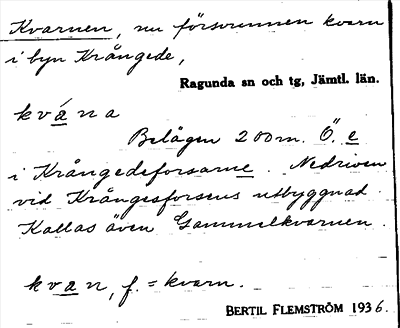 Kvarnen, nu försvunnen kvarn
i byn Krångede,
Ragunda sn och tg, Jämtl. län.
kvána
Belägen 200 m. Ö. e
i Krångedeforsarne. Nedriven
vid Krångesforsens utbyggnad.
Kallas även Gammelkvarnen.
kvan, f. = kvarn.
BERTIL FLEMSTRÖM 1936.